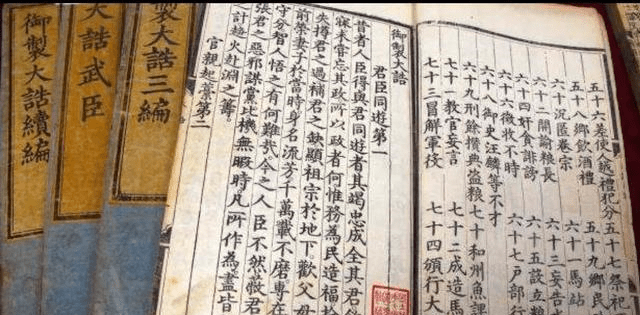 五十六差使人越禮犯分 五十七祭祀
五十八鄉飲酒禮 五十九鄉民
六十沉匿卷宗 六十 馬站
六十二開諭糧長 六十三妄告
六十四奸貪誹謗 六十五設立糧
六十六徵收不時 六十七戶部行
六十八御史汪麟等不才
六十九刑餘攢典盜糧 七十和州魚課
七十一教官妄言 七十二成造馬
七十三冒解軍役 七十四頒行大
御製大誥
君臣同遊第一
昔者人臣得與君同遊者其竭忠成全其君
寐未嘗忘其政所以政者何惟務為民造福
失撙君之過補君之缺顯祖宗於地下歡父母
前榮妻子於當時身名流芳千萬載不磨專在
守分智人悟之有何難哉今之人臣不然蔽君
張君之惡邪謀黨比機無暇時凡所作為盡皆
之計趨火赴淵之籌
官親起藁第二
製大誥三編
大誥武臣
御製大誥續編